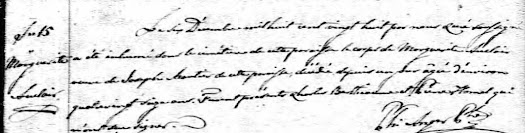 S. 15
Marguerite
Auclair
Le dix Décembre mil huit cent vingt huit par nous Curé soussigné
a été inhumé dans le cimetière de cette paroisse le corps de Marguerite Auclair
veuve de Joseph de cette paroisse, décédée depuis un jour âgée d'environ
quatre vingt six ans. Furent présents Charles et qui
n'ont su signer.
Ptre